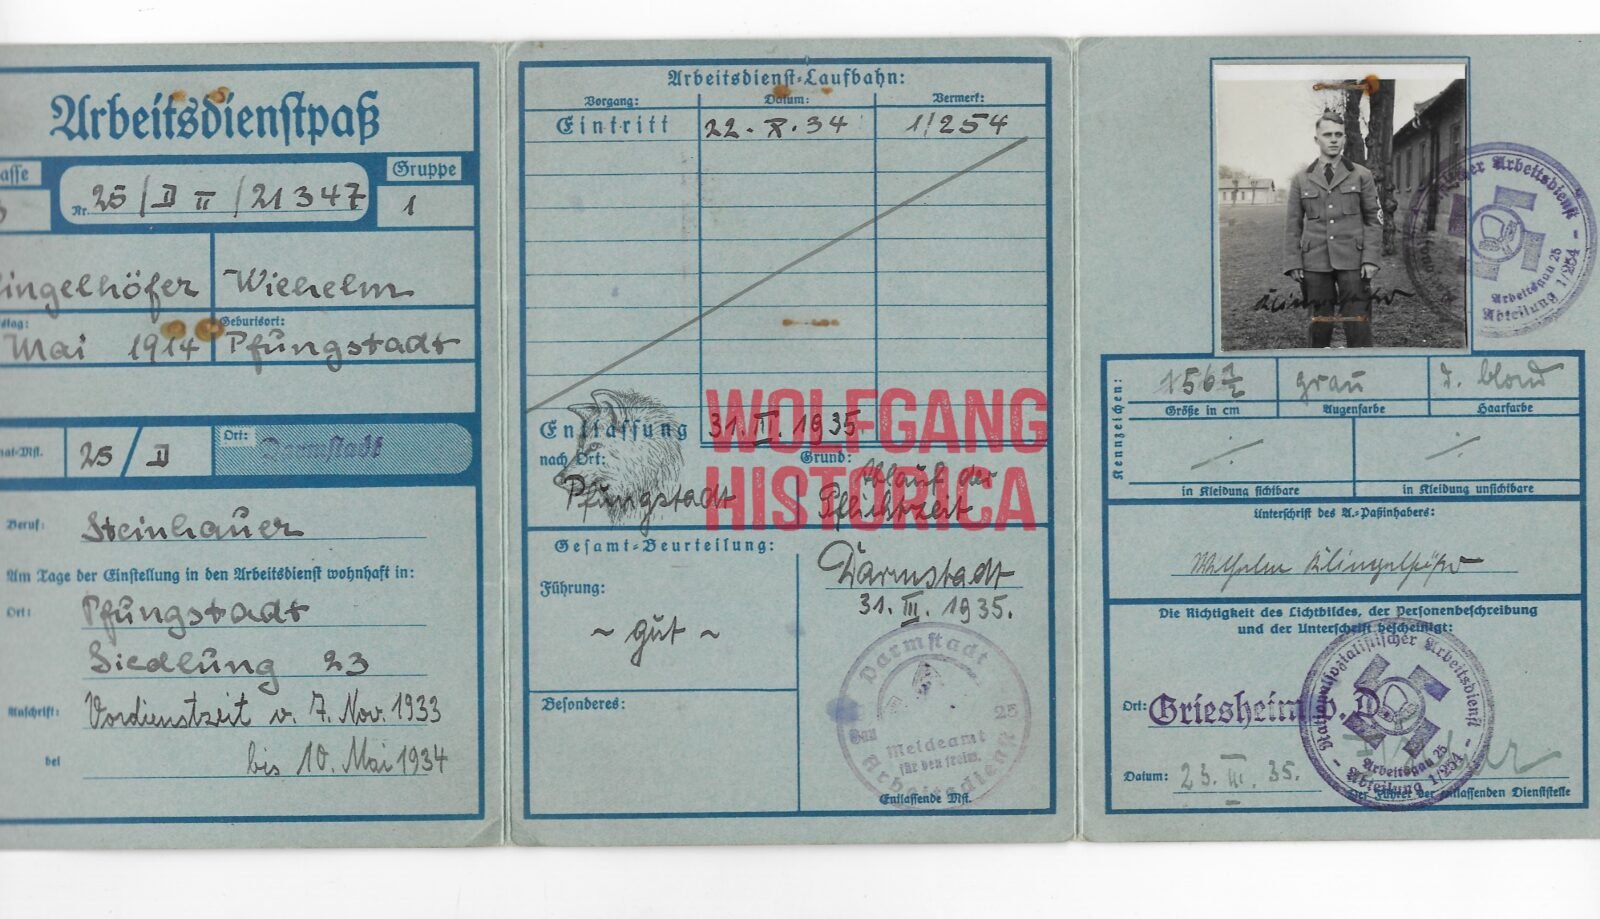 Arbeitsdienstpaß
Gruppe
Nr. 25/D II/21347
1
ingelhöfer Wilhelm
Geburtsort:
Mai 1914 Pfungstadt
25/D
Ort: Darmstadt
Beruf: Steinhauer
Am Tage der Einstellung in den Arbeitsdienst wohnhaft in:
Ort: Pfungstadt
Siedlung 23
Anschrift: Vordienstzeit v. 7. Nov. 1933
bei bis 10. Mai 1934
Arbeitsdienst-Laufbahn:
Vorgang: Datum: Vermerk:
Eintritt 22. X. 34 1/254
WOLFGANG
HISTORICA
Entlassung 31. III. 1935.
nach Ort: Grund:
Pfungstadt Ablauf der
Pflichtzeit
Gesamt-Beurteilung:
Führung:
~ gut ~
Darmstadt
31. III. 1935.
Besonderes:
Darmstadt
Gau 25
Meldeamt
für den freiw.
Arbeitsdienst
Entlassende Mst.
Arbeitsdienst
Arbeitsgau 25
Abteilung 1/254
Klingelhöfer
Kennzeichen:
156 1/2 grau d. blond
Größe in cm Augenfarbe Haarfarbe
in Kleidung sichtbare in Kleidung unsichtbare
Unterschrift des A.-Paßinhabers:
Wilhelm Klingelhöfer
Die Richtigkeit des Lichtbildes, der Personenbeschreibung
und der Unterschrift bescheinigt:
Nationalsozialistischer Arbeitsdienst
Arbeitsgau 25
Abteilung 1/254
Ort: Griesheim b. D.
Datum: 23. III. 35.
Der Führer der entlassenden Dienststelle